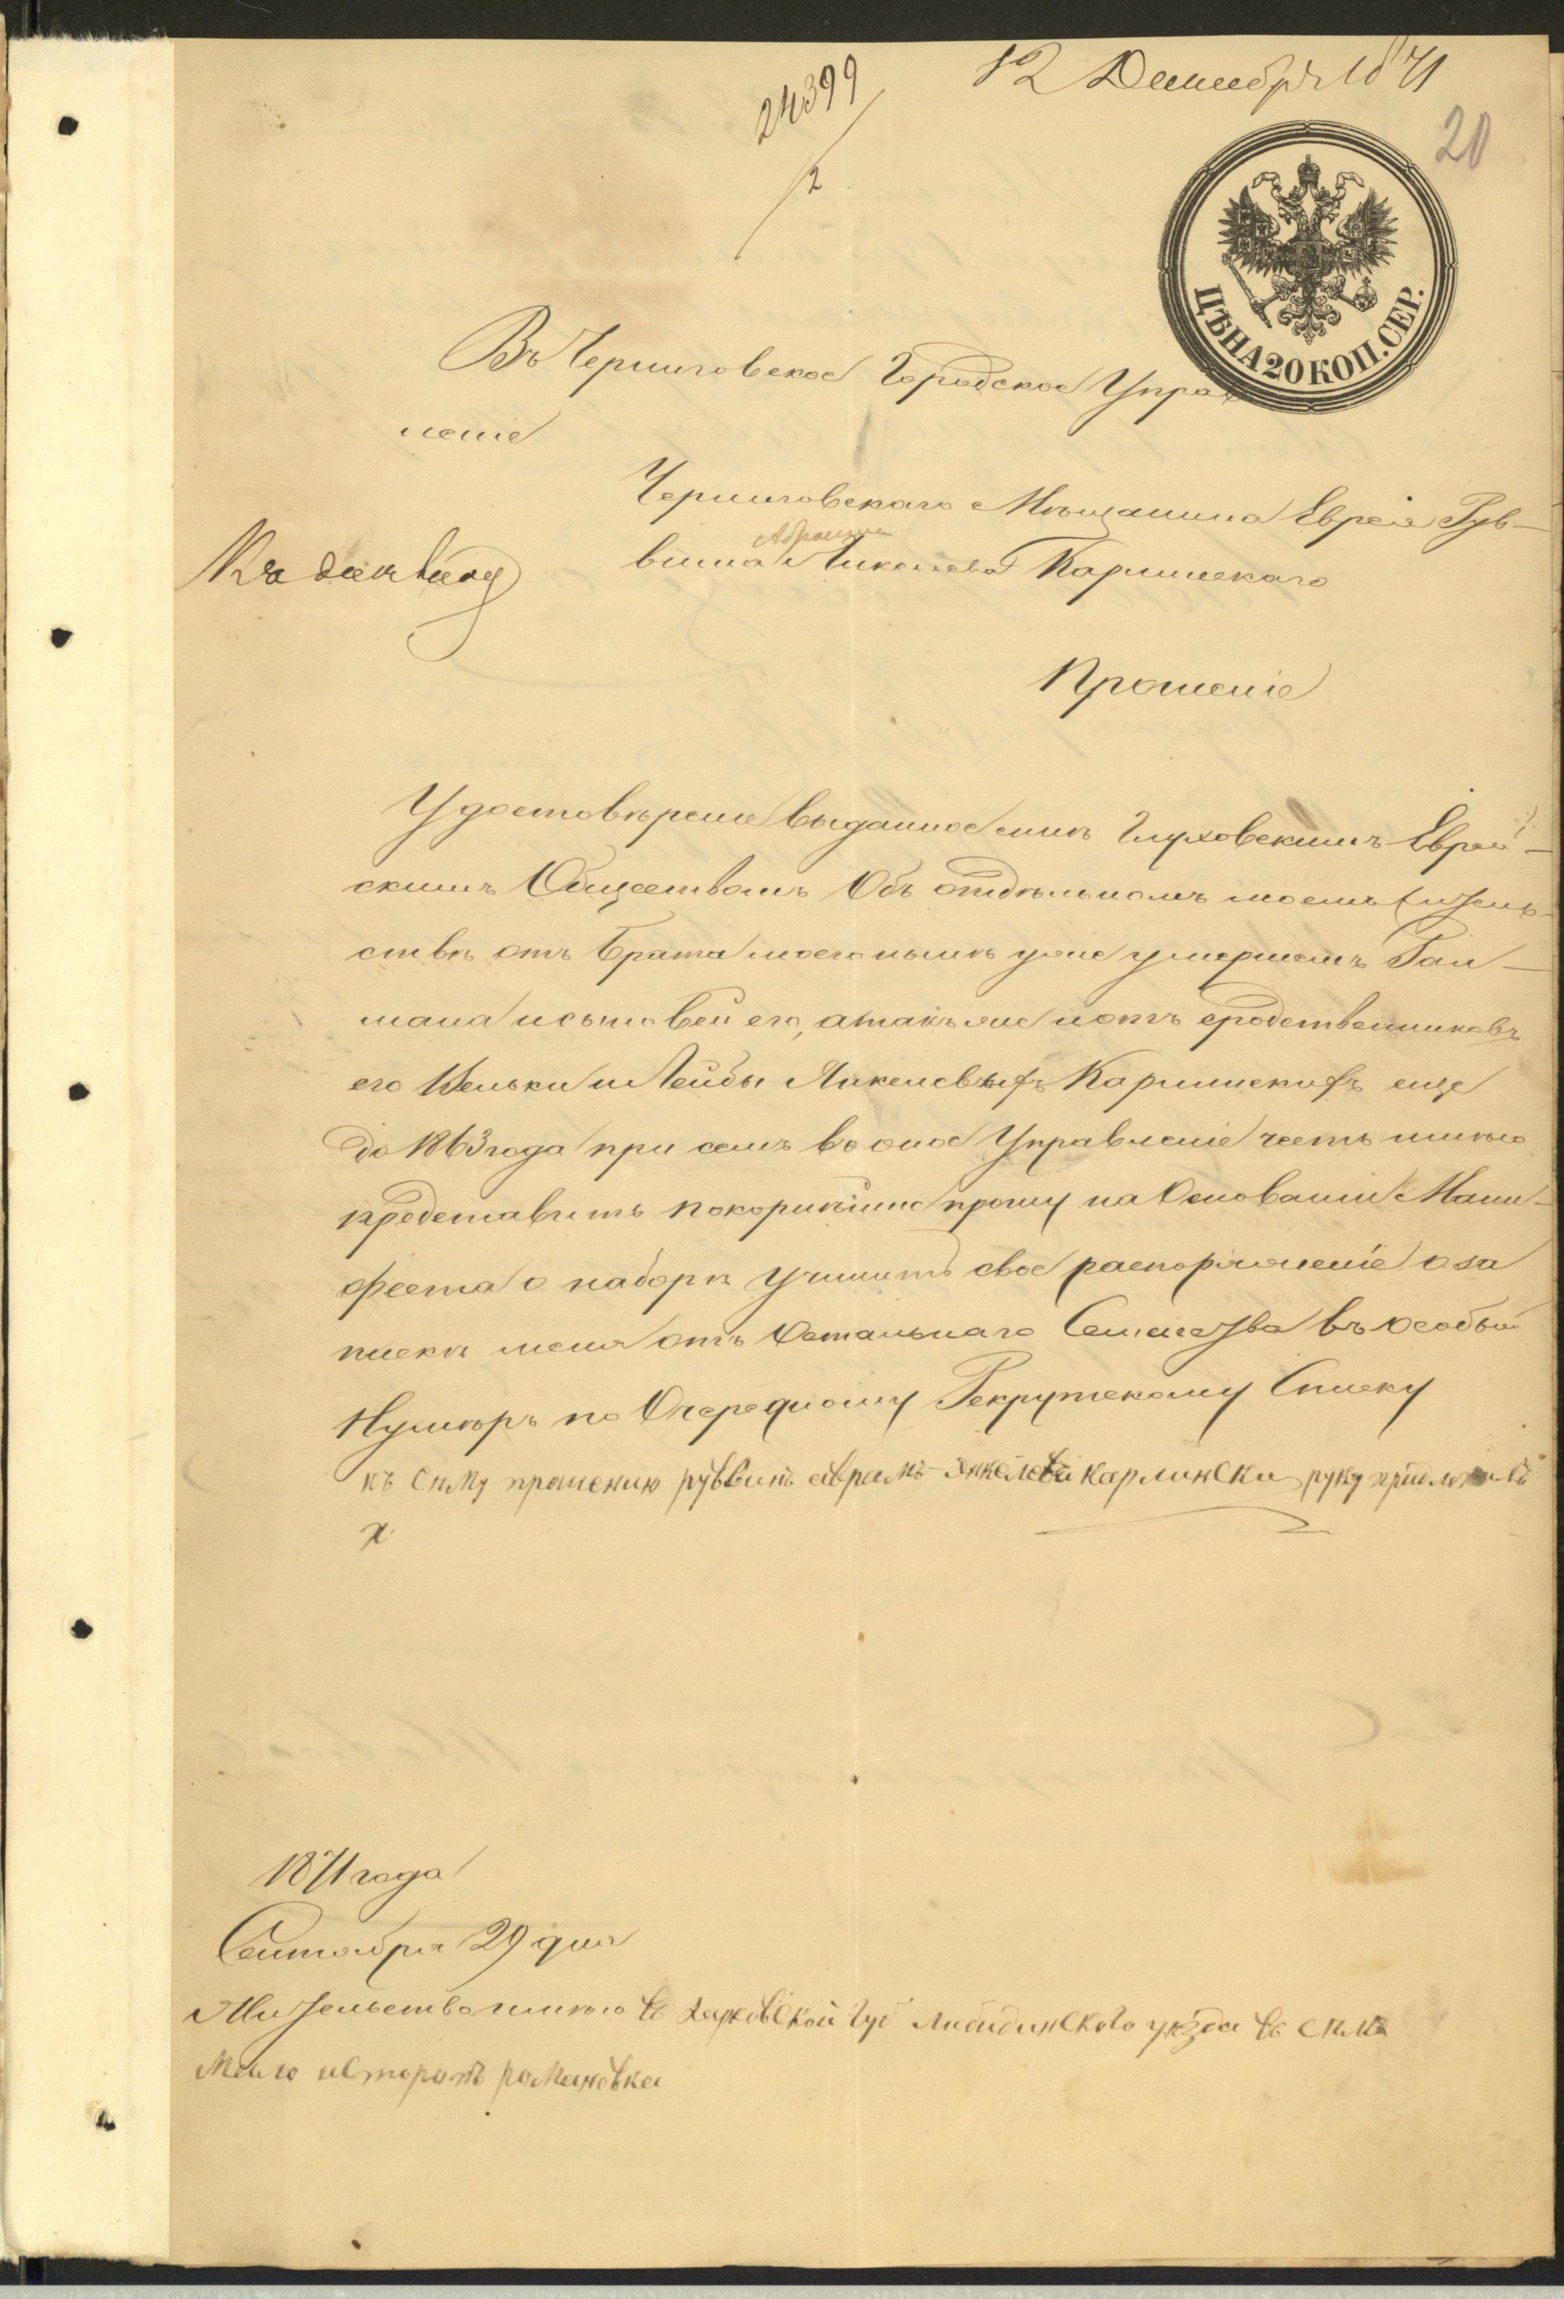 12 Декабря 1871
24399
2
20
ЦѢНА 20 КОП. СЕР.
Въ Черниговское Городское Управ
леніе
Черниговскаго Мѣщанина Еврея Рув-
Абрама
вина Янкелева Карлинскаго
Прошеніе
Удостовѣреніе выданное мнѣ Глуховскимъ Еврей-
скимъ Обществомъ Объ отдѣльномъ моемъ житель-
ствѣ отъ Брата моего нынѣ уже умершемъ Зал-
мана и сыновей его, а такъ же и отъ сродственниковъ
его и Лейбы Янкелевыхъ Карлинскихъ еще
до 1863 года при семъ въ оное Управленіе честь имѣю
представить покорнѣйше прошу на Основаніи Мани-
феста о наборѣ учинить свое распоряженіе о за
пискѣ меня отъ Остальнаго Семейства въ особый
Нумѣръ по Очередному Рекрутскому Списку
къ сему прошению руввинъ аврамъ-Янкелевъ Карлински руку приложилъ
х
1871 года
Сентября 29 дня
Жительство имѣю въ харковской губ либидинского уѣзда въ селѣ
романовка